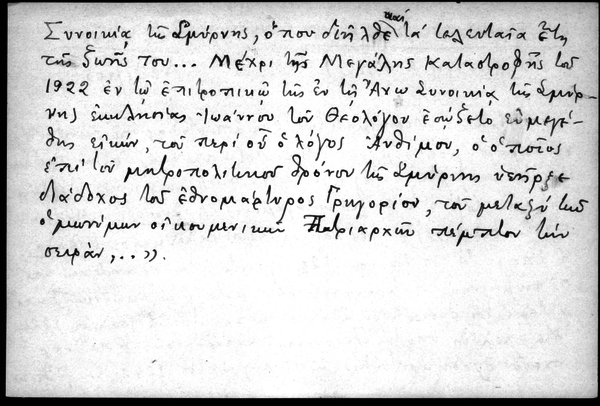 Συνοικία τῆς Σμύρνης, ὅπου διῆλθε καὶ τὰ τελευταῖα ἔτη
τῆς ζωῆς του... Μέχρι τῆς Μεγάλης Καταστροφῆς τοῦ
1922 ἐν τῷ ἐπιτροπικῷ τῆς ἐν τῇ Ἄνω Συνοικίᾳ τῆς Σμύρ-
νης ἐκκλησίας Ἰωάννου τοῦ Θεολόγου ἐσώζετο εὐμεγέ-
θης εἰκών, τοῦ περὶ οὗ ὁ λόγος Ἀνθίμου, ὁ ὁποῖος
ἐπὶ τοῦ μητροπολιτικοῦ θρόνου τῆς Σμύρνης ὑπῆρξε
διάδοχος τοῦ ἐθνομάρτυρος Γρηγορίου, τοῦ μεταξὺ τῶν
ὁμωνύμων οἰκουμενικῶν Πατριαρχῶν πέμπτου τὴν
σειράν,..».